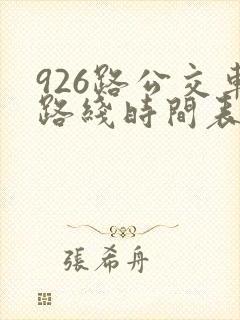 926路公交車
路綫時間表
張希舟